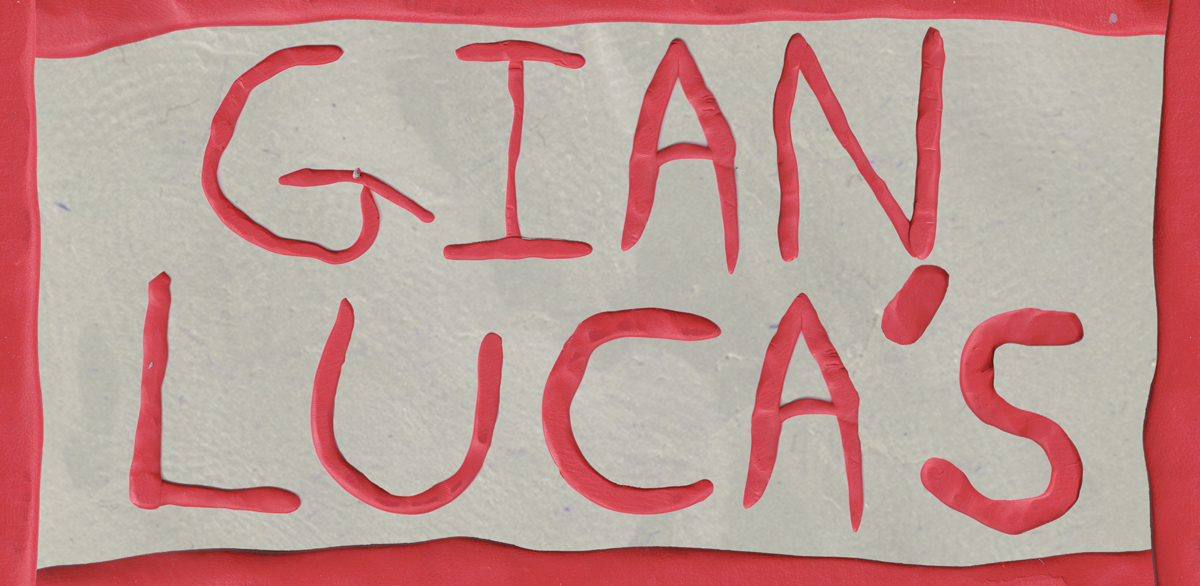 GIAN
LUCA'S